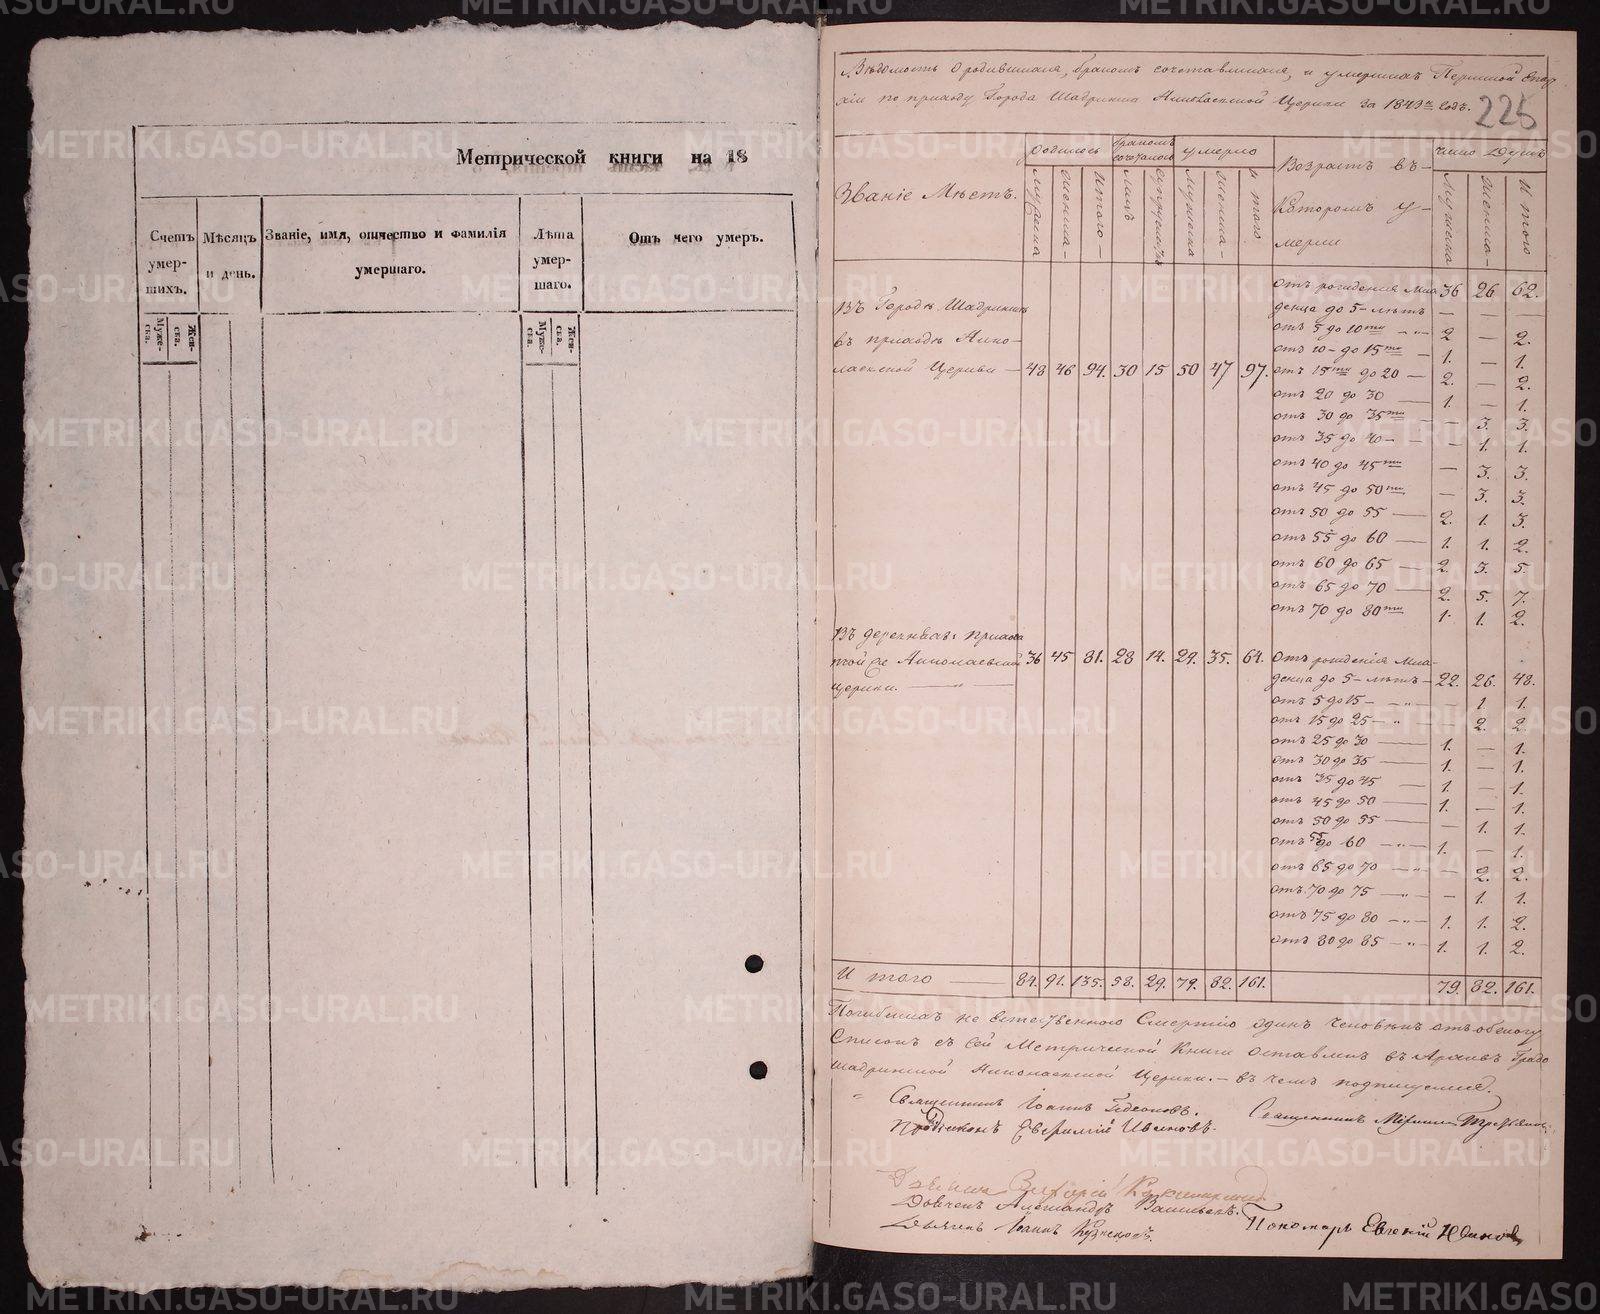 Метрической книги на 18
Счетъ умер-шихъ.
Мѣсяцъ и день.
Званіе, имя, отчество и фамилія умершаго.
Лѣта умер-шаго.
Отъ чего умеръ.
Муже-ска.
Жен-ска.
Муже-ска.
Жен-ска.
Вѣдомость о родившихся, бракомъ сочетавшихся, и умершихъ Пермской Епар
хіи по приходу Города Шадринска Николаевской Церкви за 1843й годъ.
225
Званіе Мѣстъ.
родилось
бракомъ сочеталось
умерло
Возрастъ въ-
Которомъ у-
мерли
число Душъ
мужеска
женска-
Итого-
лицъ
мужеска
женска-
и того
мужеска
женска-
И того
Въ Городѣ Шадринскѣ
въ приходѣ Нико-
лаевской Церкви — 48 46 94. 30 15 50 47 97.
отъ рожденія мла-
денца до 5-лѣтъ 36 26. 62.
отъ 5 до 10ти 2 — 2.
отъ 10 до 15ти — 1. — 1.
отъ 15ти до 20 — 2. — 2.
отъ 20 до 30 — 1. — 1.
отъ 30 до 35ти — 3. 3.
отъ 35 до 40 — 1. 1.
отъ 40 до 45ти — 3. 3.
отъ 45 до 50ти — 3. 3.
отъ 50 до 55 — 2. 1. 3.
отъ 55 до 60 — 1. 1. 2.
отъ 60 до 65 — 2. 3. 5.
отъ 65 до 70 — 2. 5. 7.
отъ 70 до 80ти 1. 1. 2.
Въ деревняхъ прихода
той же Николаевской 36 45 81. 28 14. 29. 35. 64.
Церкви.
Отъ рожденія мла-
денца до 5-лѣтъ — 22. 26. 48.
отъ 5 до 15 — 1. 1.
отъ 15 до 25 — 2. 2.
отъ 25 до 30 — 1. — 1.
отъ 30 до 35 — 1. — 1.
отъ 35 до 45 — 1. — 1.
отъ 45 до 50 — 1. — 1.
отъ 50 до 55 — 1. 1.
отъ 55 до 60 — 1. — 1.
отъ 65 до 70 — 2. 2.
отъ 70 до 75 — 1. 1.
отъ 75 до 80 — 1. 1. 2.
отъ 80 до 85 — 1. 1. 2.
И того — 84. 91. 135. 58. 29. 79. 82. 161. 79. 82. 161.
Погибшихъ не естественною Смертію одинъ человѣкъ
Списокъ съ сей Метрической Книги оставленъ въ Архивѣ Градо
шадринской Николаевской Церкви. — въ чемъ подписуемся.
Священникъ Іоаннъ Гедеоновъ.
Священникъ
Діаконъ Ивановъ.
Дьячекъ Викторій
Дьячекъ Александръ Васильевъ.
Дьячекъ Іоаннъ Кузнецовъ.
Пономарь Евгеній
METRIKI.GASO-URAL.RU